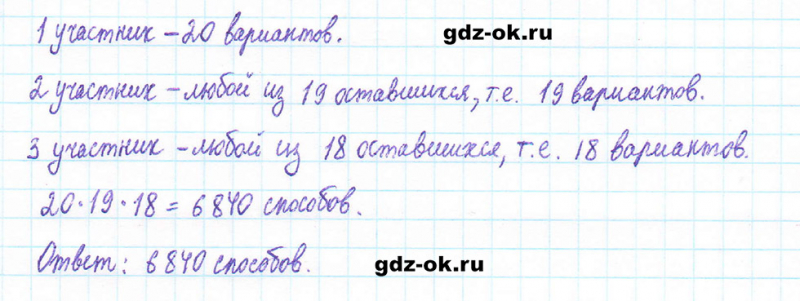 1 участник – 20 вариантов.
gdz-ok.ru
2 участник – любой из 19 оставшихся, т.е. 19 вариантов.
3 участник – любой из 18 оставшихся, т.е. 18 вариантов.
20·19·18 = 6840 способов.
Ответ: 6840 способов.
gdz-ok.ru